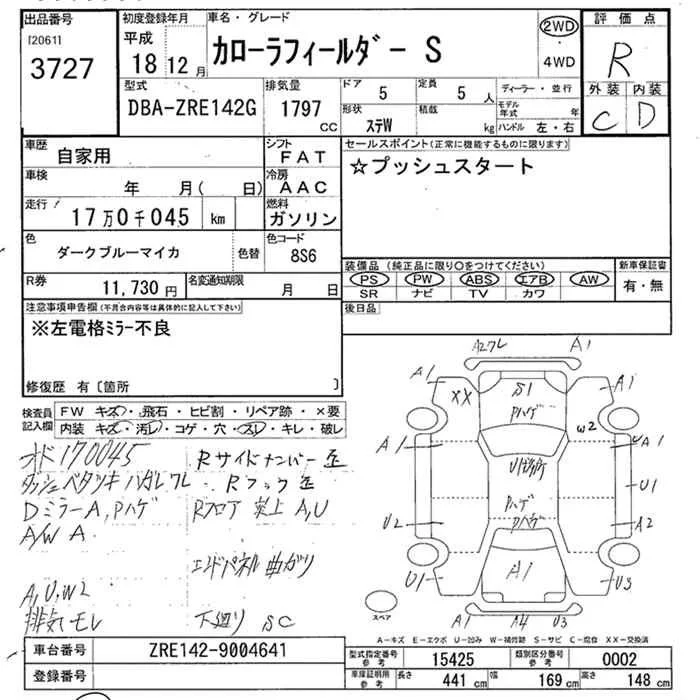 出品番号
[2061]
3727
初度登録年月
平成
18 12 月
車名・グレード
カローラフィールダー S
2WD
・
4WD
評価点
R
外装 内装
C D
型式
DBA-ZRE142G
排気量
1797
CC
ドア
5
定員
5 人
形状
ステW
積載
kg
ディーラー・並行
モデル年式 年
ハンドル 左・右
車歴
自家用
シフト
FAT
車検
年 月( 日)
冷房
AAC
走行
17万0千045 km
燃料
ガソリン
色
ダークブルーマイカ
色替
色コード
8S6
R券
11,730 円
名変通知期限
月 日
セールスポイント(正常に機能するものに限ります)
☆プッシュスタート
装備品 (純正品に限り〇をつけてください)
PS PW ABS エアB AW
SR ナビ TV カワ
新車保証書
有・無
後日品
注意事項申告欄(不具合内容等は具体的に記入して下さい)
※左電格ミラー不良
修復歴 有〔箇所 〕
検査員記入欄
FW キズ・飛石・ヒビ割・リペア跡・×要
内装 キズ・汚レ・コゲ・穴・スレ・キレ・破レ
オド170045
ダッシュベタツキ ハガレ ワレ
Dミラー A, Pハゲ
A/W A
A, U, W2
排気モレ
Rサイドメンバー
Rフック
Rフロア 突上 A, U
エンドパネル 曲ガリ
下廻り SC
A2ワレ
A1
A1
XX
S1
Pハゲ
A1
W2
A1
A1
U1
U2
Pハゲ
Pハゲ
A2
U1
A1
U3
A1
A4
U3
スペア
A-キズ E-エクボ U-凹み W-補修跡 S-サビ C-腐食 XX-交換済
車台番号
ZRE142-9004641
登録番号
型式指定番号
参考
15425
類別区分番号
参考
0002
車庫証明用
参考
長さ
441 cm
幅
169 cm
高さ
148 cm